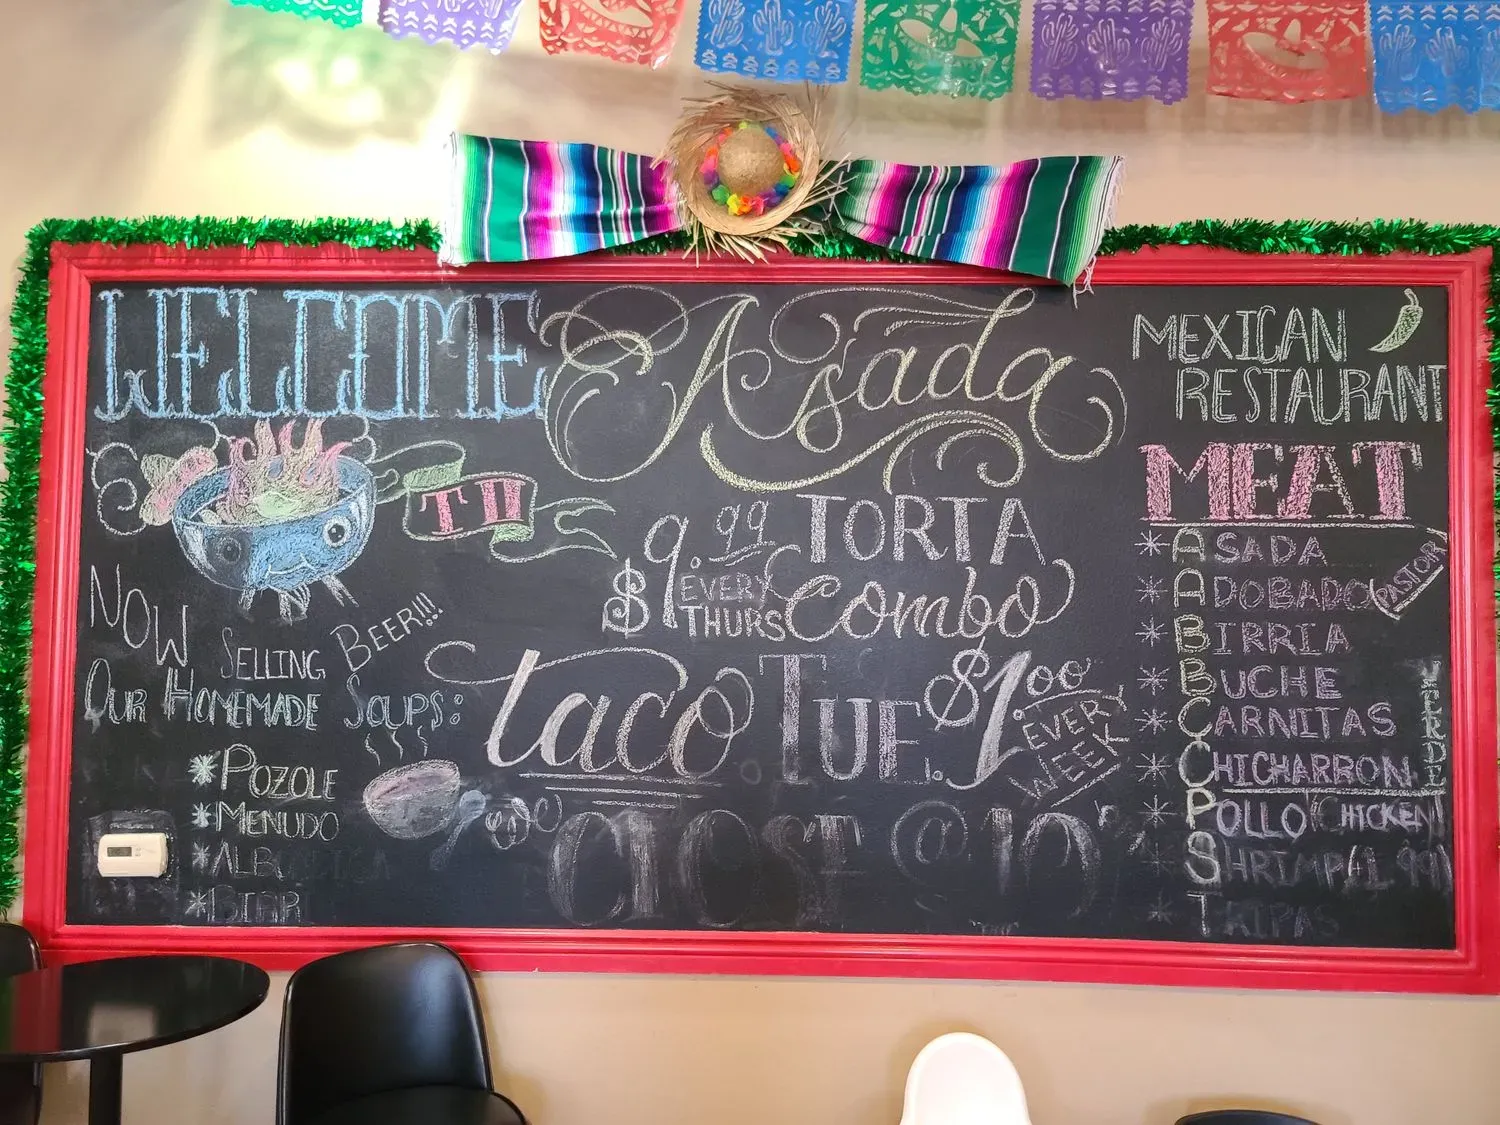 WELCOME
TO
Asada
MEXICAN
RESTAURANT
NOW
SELLING
BEER!!!
OUR HOMEMADE SOUPS:
*POZOLE
*MENUDO
$9.99 TORTA
EVERY
THURS
Combo
taco TUE. $1.00
EVERY
WEEK
CLOSE @ 10
MEAT
*ASADA
*ADOBADO PASTOR
*BIRRIA
*BUCHE
*CARNITAS
*CHICHARRON VERDE
*POLLO (CHICKEN)
*SHRIMP (1.99)
*TRIPAS